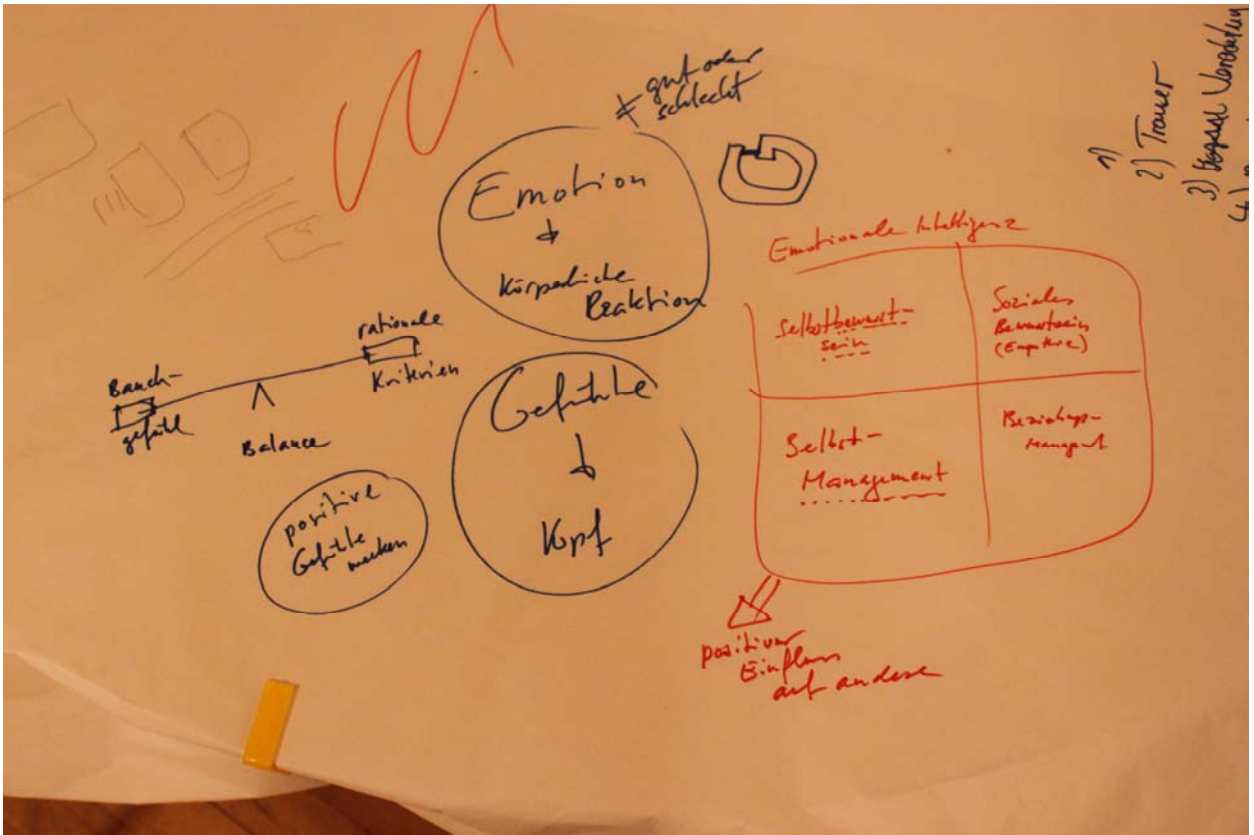 ≠ gut oder
schlecht
Emotion
Körperliche
Reaktion
rationale
Kriterien
Bauch-
gefühl
Balance
Gefühle
Kopf
positive
Gefühle
Emotionale Intelligenz
Selbstbewusst-
sein
Soziales
Bewusstsein
(Empathie)
Selbst-
Management
Beziehungs-
positiver
Einfluss
auf andere
1)
2) Trauer
3)
4)